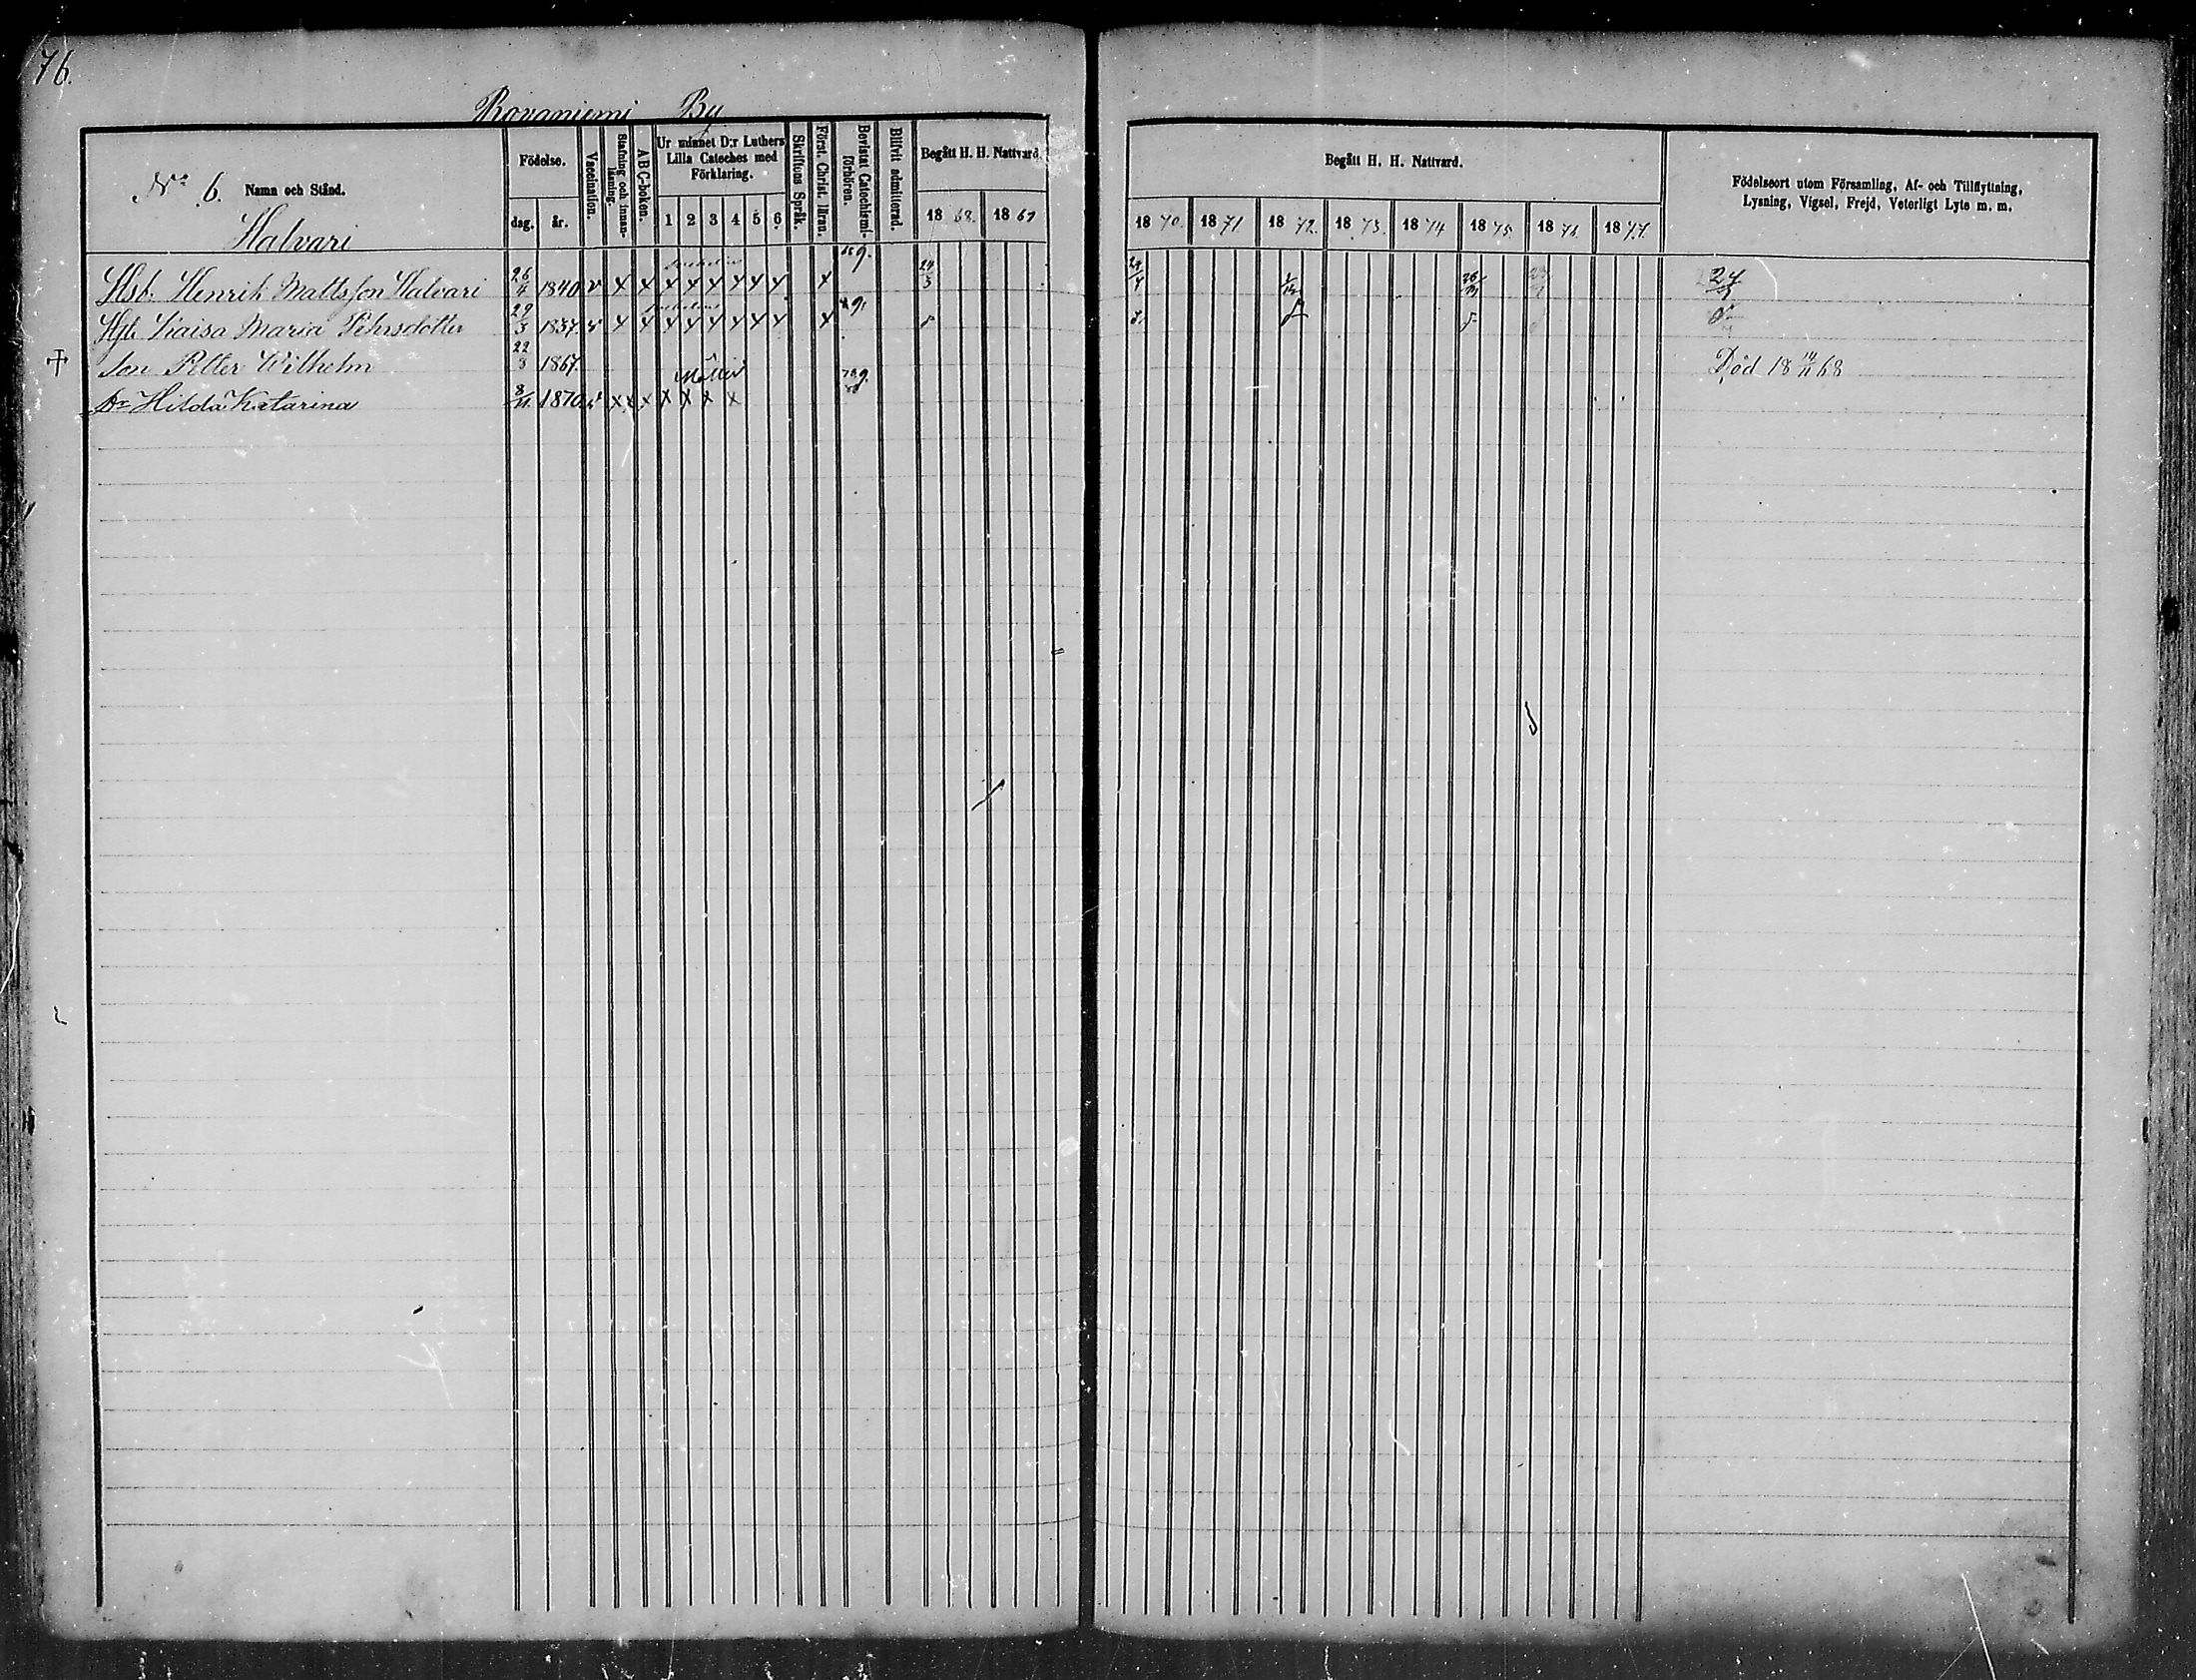 76.
Rovaniemi By
No 6. Namn och Stånd.
Halvari
Födelse.
dag. år.
Vaccination.
Stafning och innanläsning.
A B C-boken.
Ur minnet D:r Luthers Lilla Cateches med Förklaring.
1 2 3 4 5 6
Skriftens Språk.
Först. Christ. läran.
Bevistat Catechismiförhören.
Blifvit admitterad.
Begått H. H. Nattvard.
18 68. 18 69
Begått H. H. Nattvard.
18 70. 18 71 18 72. 18 73. 18 74 18 75. 18 76. 18 77.
Födelseort utom Församling, Af- och Tillflyttning,
Lysning, Vigsel, Frejd, Veterligt Lyte m. m.
Hsb. Henrik Mattsson Halvari 26/4 1840 v x x x x x x x x x 24/3 24/4
Hst. Kaisa Maria Pehrsdotter 29/3 1837. v x x x x x x x x x
Son Petter Wilhelm 22/3 1867. Död 18 14/11 68
Dr Hilda Katarina 8/11 1870 v x x x x x x x